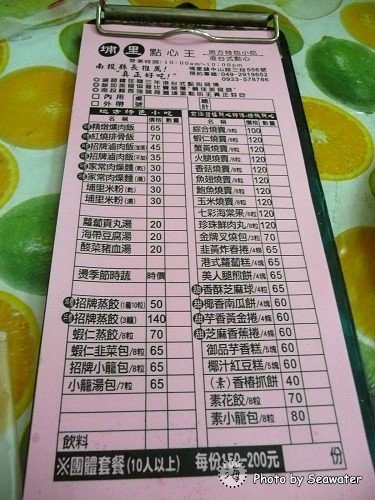 埔里 點心王 地方特色小吃
港台式點心
營業時間:10:00am~10:00pm
南投縣長推薦!
"真正好吃!"
埔里鎮中山路三段556號
預約專線:049-2918652
0933-578786
內用
外帶
總計
地方特色小吃 價格 數量
精燉爌肉飯 65
紅燒排骨飯 70
招牌滷肉飯(加蛋) 45
招牌滷肉飯(不加) 35
家常肉燥麵(湯) 30
家常肉燥麵(乾) 30
埔里米粉(乾) 30
埔里米粉(湯) 30
蘿蔔貢丸湯 20
海帶豆腐湯 20
酸菜豬血湯 20
燙季節時蔬 時價
招牌蒸餃(1籠10粒) 50
招牌蒸餃(3籠) 140
蝦仁蒸餃/8粒 70
蝦仁韭菜包/8粒 65
招牌小籠包/8粒 65
小籠湯包/7粒 65
飲料
價格 數量
綜合燒賣/8粒 100
蝦仁燒賣/8粒 120
蟹黃燒賣/8粒 120
火腿燒賣/8粒 120
香菇燒賣/8粒 120
魚翅燒賣/8粒 120
鮑魚燒賣/8粒 120
玉米燒賣/8粒 120
七彩海棠果/8粒 120
珍珠鮮肉丸/8粒 120
金牌叉燒包/7粒 70
韭黃炸春捲/4條 60
港式蘿蔔糕/4塊 60
美人腿煎餅/4塊 60
甜 香酥芝麻球/4粒 60
甜 椰香南瓜餅/4塊 60
甜 芋香黃金捲/4條 60
甜 芝麻香蕉捲/4條 60
御品芋香糕/5塊 60
椰汁紅豆糕/5塊 60
(素)香椿抓餅 40
素花餃/8粒 70
素小籠包/8粒 80
份
※團體套餐(10人以上) 每份150-200元
Photo by Seawater